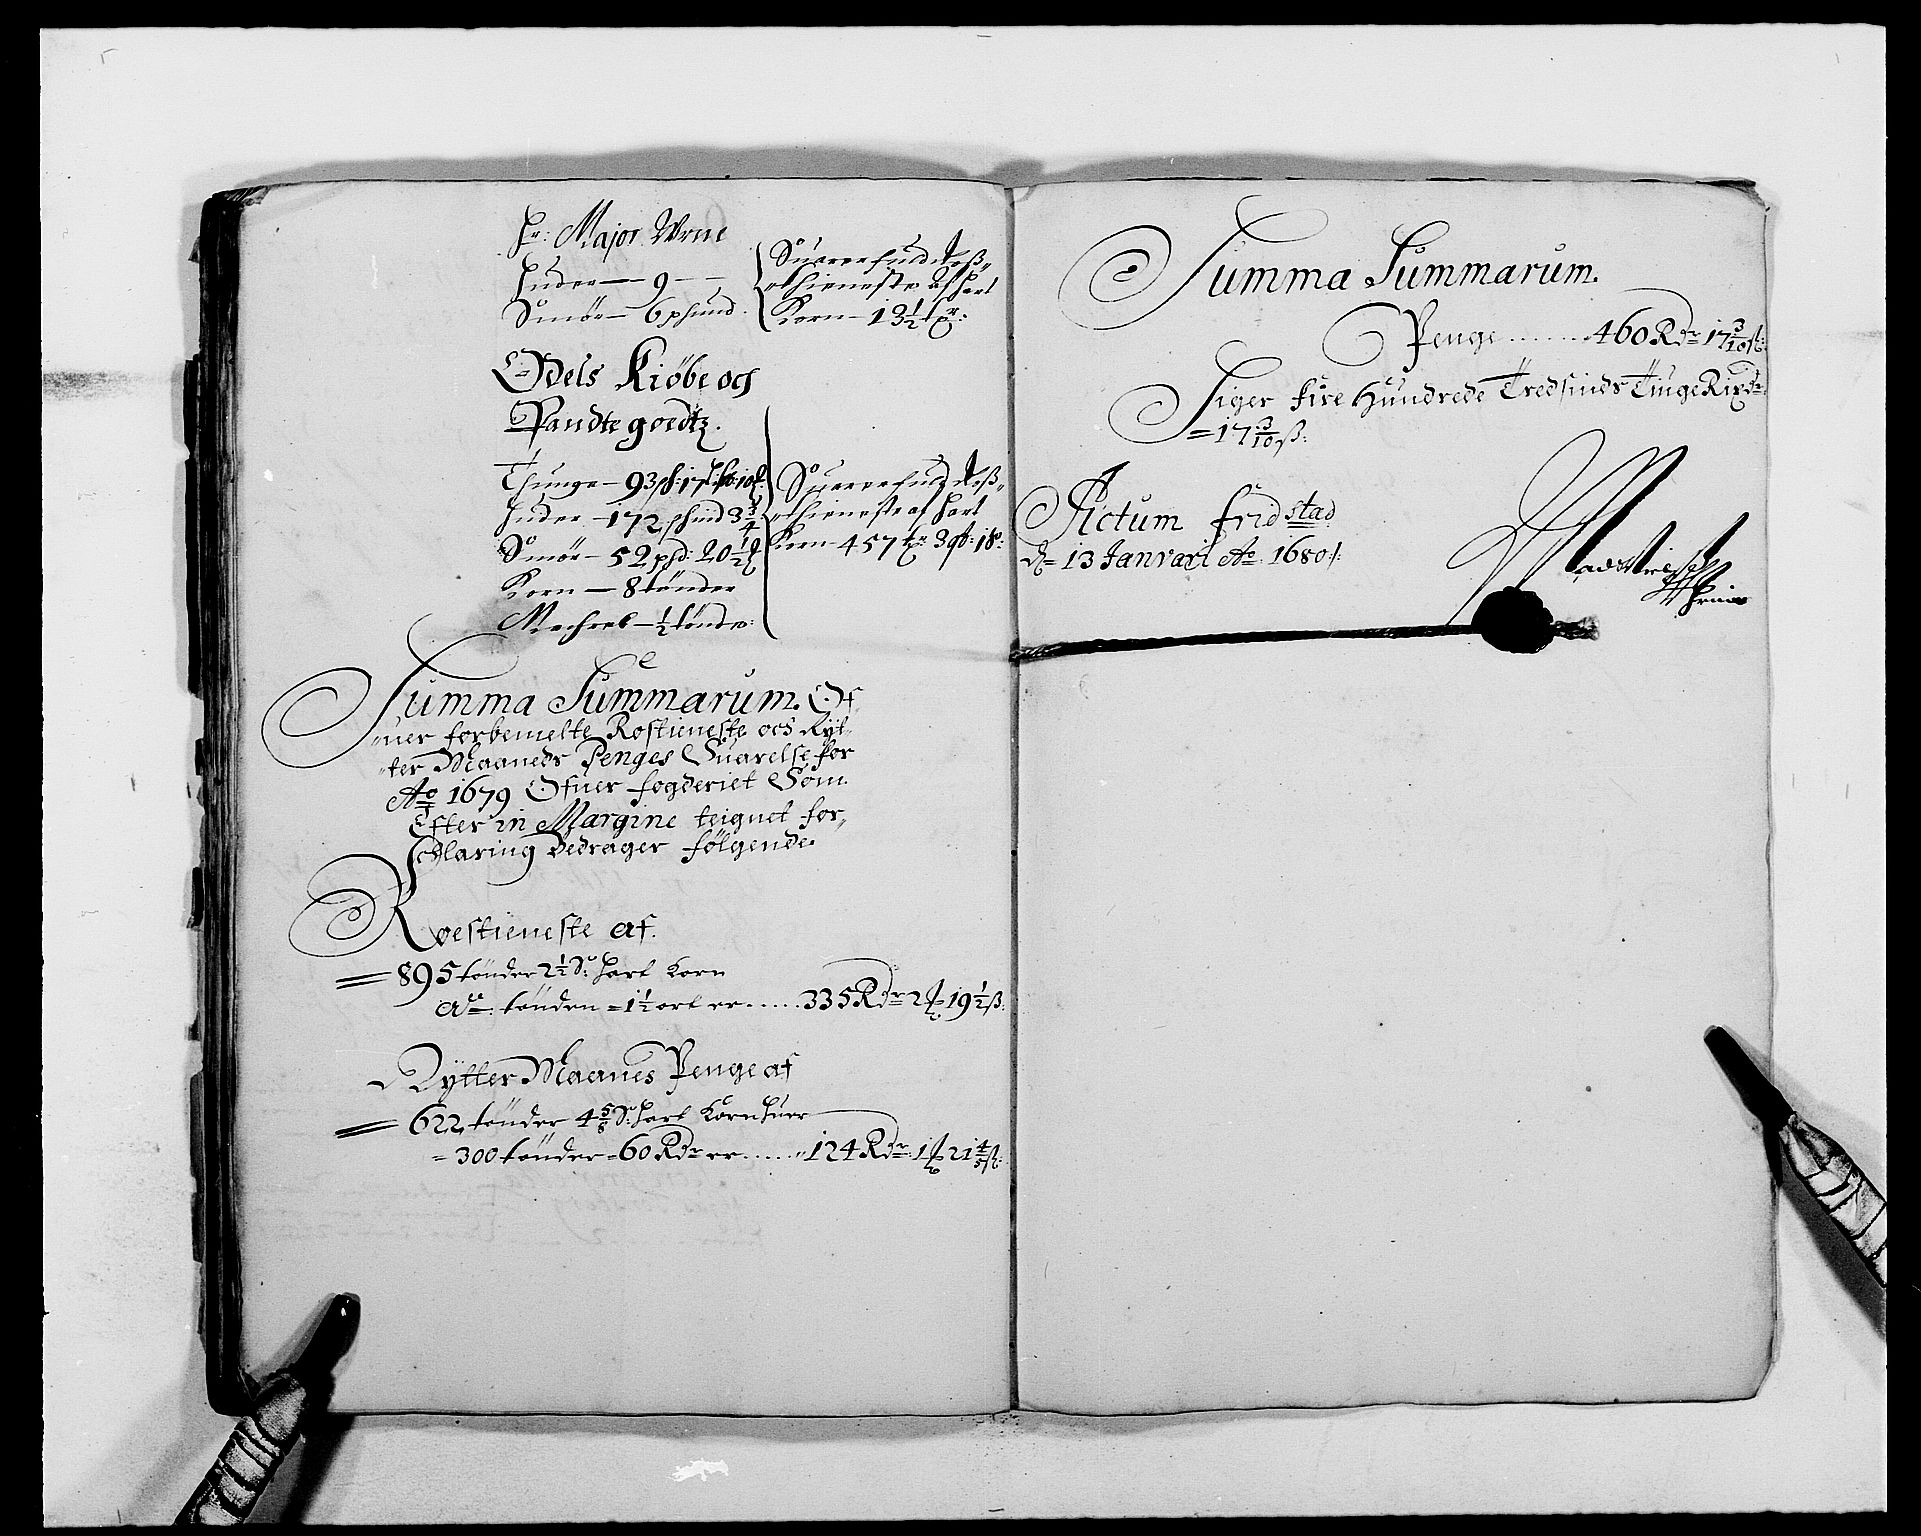 Hr: Major Wrne
Huder — 9 —
Smør — 6 phund.
Suarer fuld Roß„
„thieneste af hart
Korn — 13½ tr:
Odels Kiøbe och
Pandte goedtz.
Thunge — 93
Huder — 172 schind 3¾
Smør — 52 pd: 20½
Korn — 8 tønder
Mechreel — ½ tønde:
Suarer fuld Roß„
„thieneste af hart
Korn — 457 tr 3 qt: 18:
Summa Summarum. Of„
„uer forbemelte Rostieneste och Ryt„
„ter Maaneds Penges Suarelse for
Ao 1679 Ofuer fogderiet Som
Efter in Margine teignet for„
Claring Bedrager følgende
Roestieneste af.
895 tønder 2½ S: hart Korn
a tønden = 1½ ort er ..... 335 Rdr 2 19½ ß:
Rytter Maanes Penge af
622 tønder 4⅝ S: hart Korn huer
= 300 tønder = 60 Rdr er ..... 124 Rdr 1 21⅘ ß:
Summa Summarum.
Penge ....... 460 Rdr 17 3/10 ß:
Siger fire Hundrede Tredsinds Tiuge Rixdr
= 17 3/10 ß:
Actum fridstad
d 13 Januari Ao 1680 /: